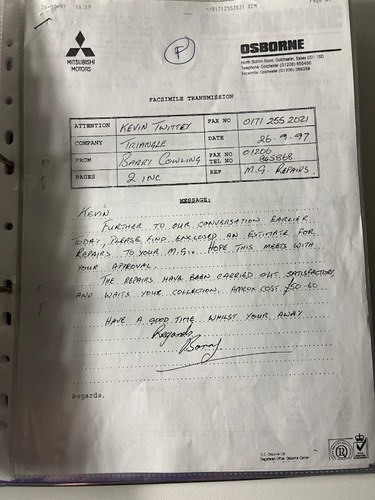 P
MITSUBISHI
MOTORS
OSBORNE
North Station Road, Colchester, Essex CO1 1SD
FACSIMILE TRANSMISSION
ATTENTION KEVIN TWITTEY FAX NO 0171 255 2021
COMPANY TRIANGLE DATE 26.9.97
FROM BARRY COWLING FAX NO 01206
TEL NO 865868
PAGES 2 INC REF M.G. REPAIRS.
MESSAGE:
KEVIN
FURTHER TO OUR CONVERSATION EARLIER
TODAY, PLEASE FIND ENCLOSED AN ESTIMATE FOR
REPAIRS TO YOUR M.G.. HOPE THIS MEETS WITH
YOUR APPROVAL.
THE REPAIRS HAVE BEEN CARRIED OUT SATISFACTORY
AND WAITS YOUR COLLECTION. APROX COST £50-60
HAVE A GOOD TIME WHILST YOUR AWAY
Regards
Barry
Regards,
Registered Office: Osborne